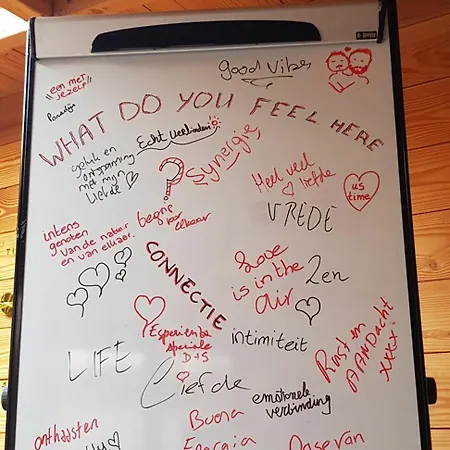 good vibes
een met
jezelf
Paradijs
WHAT DO YOU FEEL HERE
?
Echt verbinden
geluk en
ontspanning
met mijn
liefde
Synergie
Heel veel
liefde
us
time
VREDE
begrip
voor
elkaar
intens
genoten
van de natuur
en van elkaar.
CONNECTIE
Love
is in the
air
Zen
Esperienza
speciale
D+S
intimiteit
Rust en
AANDACHT
xxxx.
LIFE
Liefde
emotionele
verbinding
onthaasten
Buena
Energia
Oase van